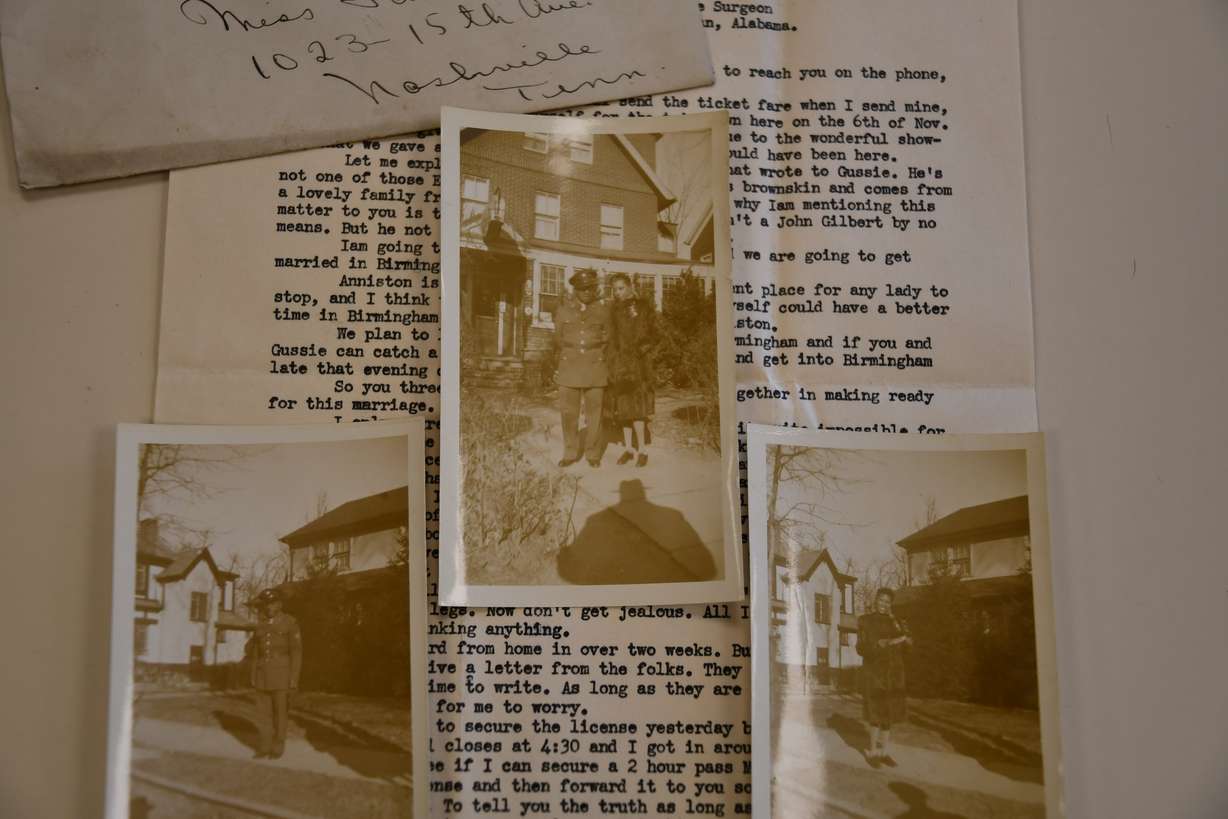 Miss
1023-15th Ave.
Nashville
Tenn.
Surgeon
Alabama.
to reach you on the phone,
send the ticket fare when I send mine,
here on the 6th of Nov.
we gave to the wonderful show-
Let me expl ould have been here.
not one of those E hat wrote to Gussie. He's
a lovely family fr brownskin and comes from
matter to you is t why Iam mentioning this
means. But he not n't a John Gilbert by no
Iam going t we are going to get
married in Birming
Anniston is ent place for any lady to
stop, and I think yself could have a better
time in Birmingham iston.
We plan to mingham and if you and
Gussie can catch a nd get into Birmingham
late that evening
So you three gether in making ready
for this marriage.
impossible for
lege. Now don't get jealous. All I
nking anything.
rd from home in over two weeks. Bu
ive a letter from the folks. They
ime to write. As long as they are
for me to worry.
to secure the license yesterday b
closes at 4:30 and I got in arou
e if I can secure a 2 hour pass M
nse and then forward it to you so
To tell you the truth as long as